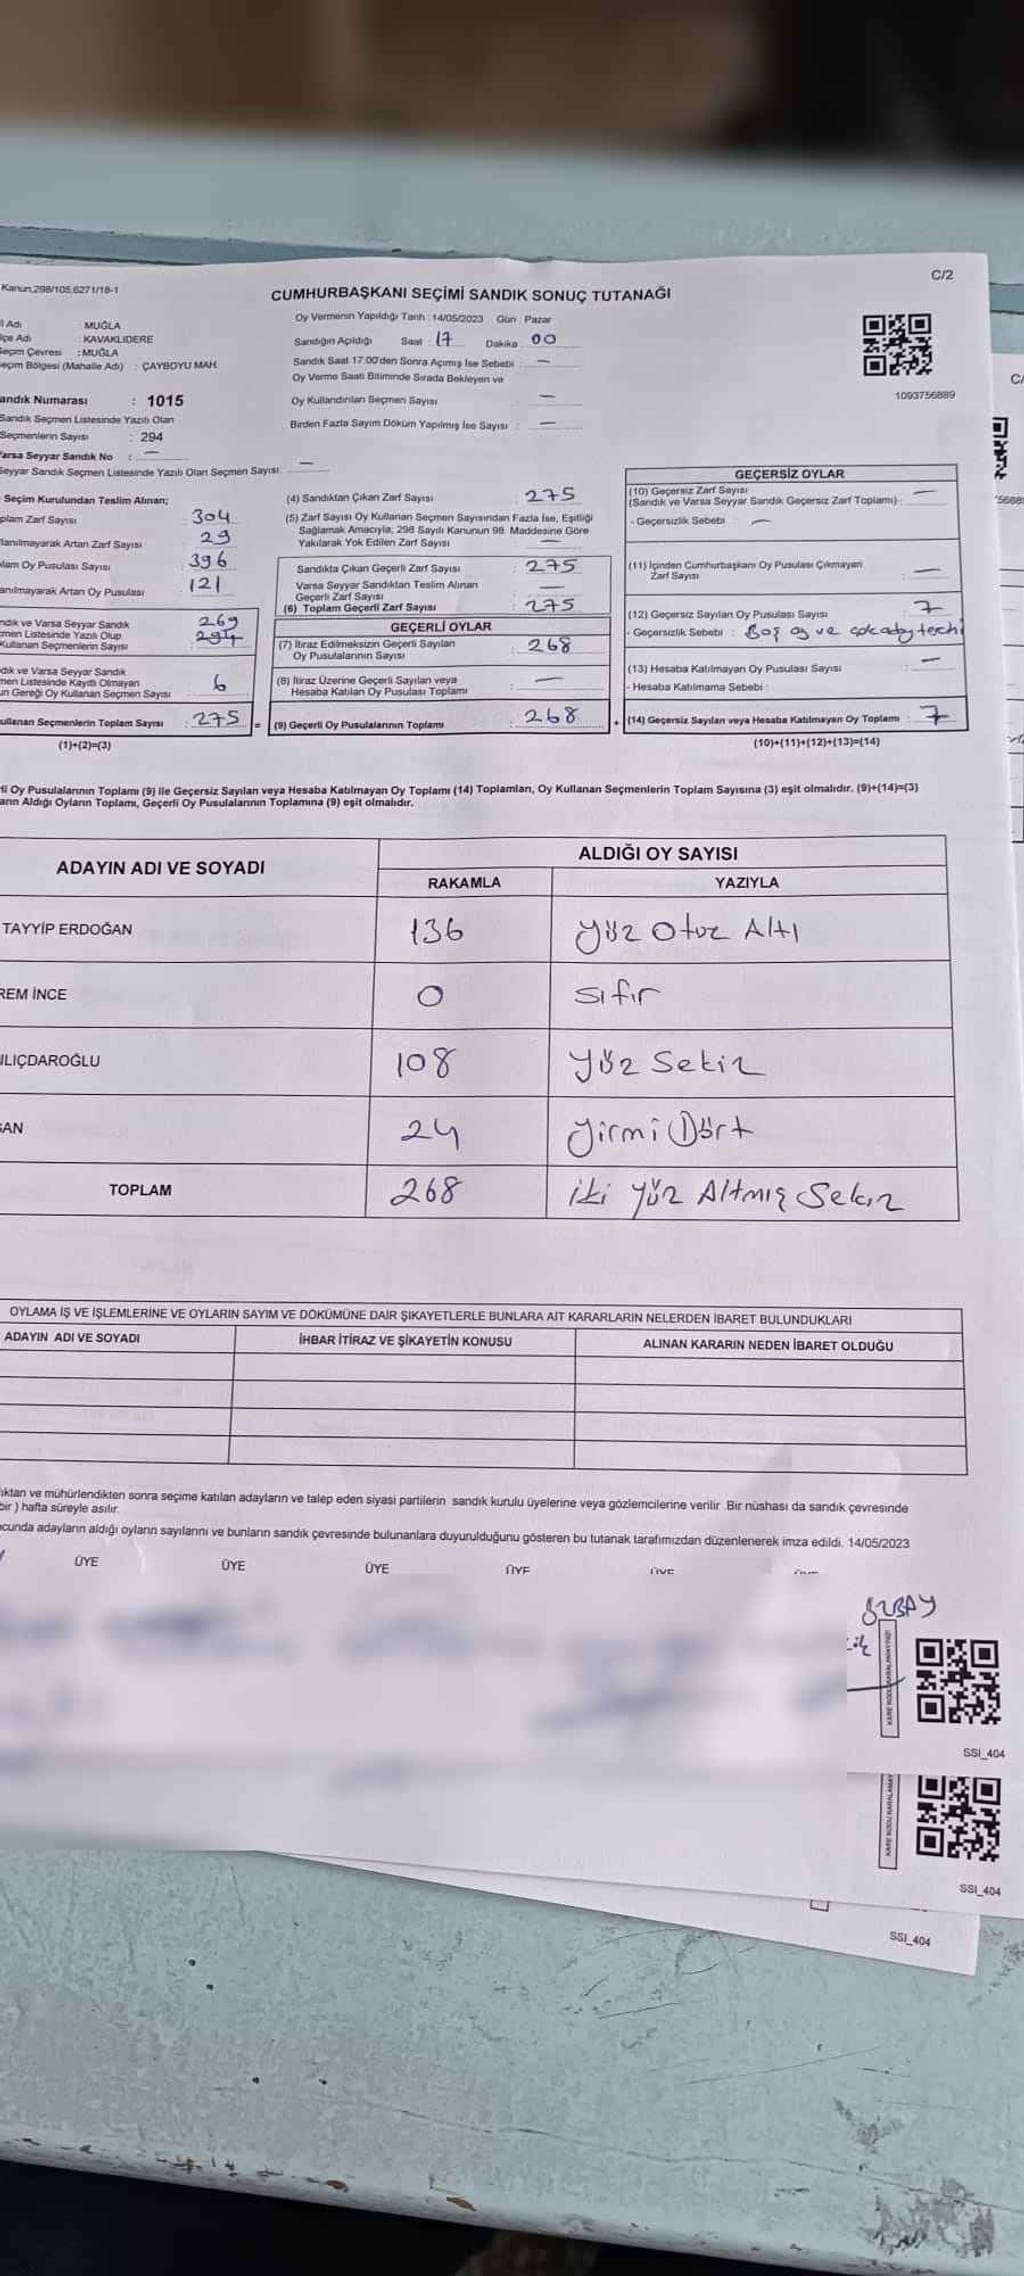 C/2
Kanun,298/105,6271/18-1
CUMHURBAŞKANI SEÇİMİ SANDIK SONUÇ TUTANAĞI
l Adı MUĞLA
lçe Adı : KAVAKLIDERE
Seçim Çevresi : MUĞLA
eçim Bölgesi (Mahalle Adı) : ÇAYBOYU MAH.
andık Numarası : 1015
Sandık Seçmen Listesinde Yazılı Olan
Seçmenlerin Sayısı : 294
arsa Seyyar Sandık No : —
Seyyar Sandık Seçmen Listesinde Yazılı Olan Seçmen Sayısı —
Oy Vermenin Yapıldığı Tarih : 14/05/2023 Gün : Pazar
Sandığın Açıldığı Saat : 17 Dakika 00
Sandık Saat 17.00'den Sonra Açımış İse Sebebi : —
Oy Verme Saati Bitiminde Sırada Bekleyen ve
Oy Kullandırılan Seçmen Sayısı —
Birden Fazla Sayım Döküm Yapılmış İse Sayısı : —
1093756889
Seçim Kurulundan Teslim Alınan;
plam Zarf Sayısı 304
lanılmayarak Artan Zarf Sayısı 29
lam Oy Pusulası Sayısı 396
anılmayarak Artan Oy Pusulası 121
ndık ve Varsa Seyyar Sandık
men Listesinde Yazılı Olup
Kullanan Seçmenlerin Sayısı
269
294
dık ve Varsa Seyyar Sandık
men Listesinde Kayıtlı Olmayan
un Gereği Oy Kullanan Seçmen Sayısı 6
ullanan Seçmenlerin Toplam Sayısı : 275 =
(1)+(2)=(3)
(4) Sandıktan Çıkan Zarf Sayısı 275
(5) Zarf Sayısı Oy Kullanan Seçmen Sayısından Fazla İse, Eşitliği
Sağlamak Amacıyla; 298 Sayılı Kanunun 98. Maddesine Göre
Yakılarak Yok Edilen Zarf Sayısı —
Sandıkta Çıkan Geçerli Zarf Sayısı : 275
Varsa Seyyar Sandıktan Teslim Alınan
Geçerli Zarf Sayısı —
(6) Toplam Geçerli Zarf Sayısı : 275
GEÇERLİ OYLAR
(7) İtiraz Edilmeksizin Geçerli Sayılan
Oy Pusulalarının Sayısı : 268
(8) İtiraz Üzerine Geçerli Sayılan veya
Hesaba Katılan Oy Pusulası Toplamı : —
(9) Geçerli Oy Pusulalarının Toplamı : 268 +
GEÇERSİZ OYLAR
(10) Geçersiz Zarf Sayısı
(Sandık ve Varsa Seyyar Sandık Geçersiz Zarf Toplamı) : —
- Geçersizlik Sebebi : —
(11) İçinden Cumhurbaşkanı Oy Pusulası Çıkmayan
Zarf Sayısı : —
(12) Geçersiz Sayılan Oy Pusulası Sayısı : 7
- Geçersizlik Sebebi : Boş oy ve çok aday terchi
(13) Hesaba Katılmayan Oy Pusulası Sayısı : —
- Hesaba Katılmama Sebebi :
(14) Geçersiz Sayılan veya Hesaba Katılmayan Oy Toplamı : 7
(10)+(11)+(12)+(13)=(14)
li Oy Pusulalarının Toplamı (9) ile Geçersiz Sayılan veya Hesaba Katılmayan Oy Toplamı (14) Toplamları, Oy Kullanan Seçmenlerin Toplam Sayısına (3) eşit olmalıdır. (9)+(14)=(3)
arın Aldığı Oyların Toplamı, Geçerli Oy Pusulalarının Toplamına (9) eşit olmalıdır.
ADAYIN ADI VE SOYADI ALDIĞI OY SAYISI
RAKAMLA YAZIYLA
TAYYİP ERDOĞAN 136 Yüz Otuz Altı
REM İNCE 0 sıfır
ILIÇDAROĞLU 108 Yüz Sekiz
ĞAN 24 Yirmi Dört
TOPLAM 268 iki yüz Altmış Sekiz
OYLAMA İŞ VE İŞLEMLERİNE VE OYLARIN SAYIM VE DÖKÜMÜNE DAİR ŞİKAYETLERLE BUNLARA AİT KARARLARIN NELERDEN İBARET BULUNDUKLARI
ADAYIN ADI VE SOYADI İHBAR İTİRAZ VE ŞİKAYETİN KONUSU ALINAN KARARIN NEDEN İBARET OLDUĞU
ıktan ve mühürlendikten sonra seçime katılan adayların ve talep eden siyasi partilerin sandık kurulu üyelerine veya gözlemcilerine verilir .Bir nüshası da sandık çevresinde
bir ) hafta süreyle asılır.
ucunda adayların aldığı oyların sayılarını ve bunların sandık çevresinde bulunanlara duyurulduğunu gösteren bu tutanak tarafımızdan düzenlenerek imza edildi. 14/05/2023
ÜYE ÜYE ÜYE ÜYE ÜYE
ÖZBAY
SSI_404
SSI_404
SSI_404